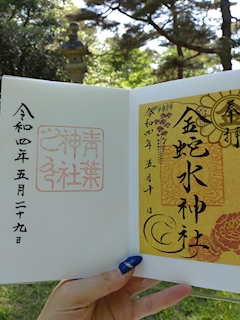 奉拝
金蛇水神社
令和四年五月十日
青葉
神社
之印
令和四年五月二十九日